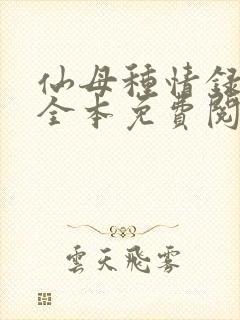 仙母種情録
全本免費閱
雲天飛雾